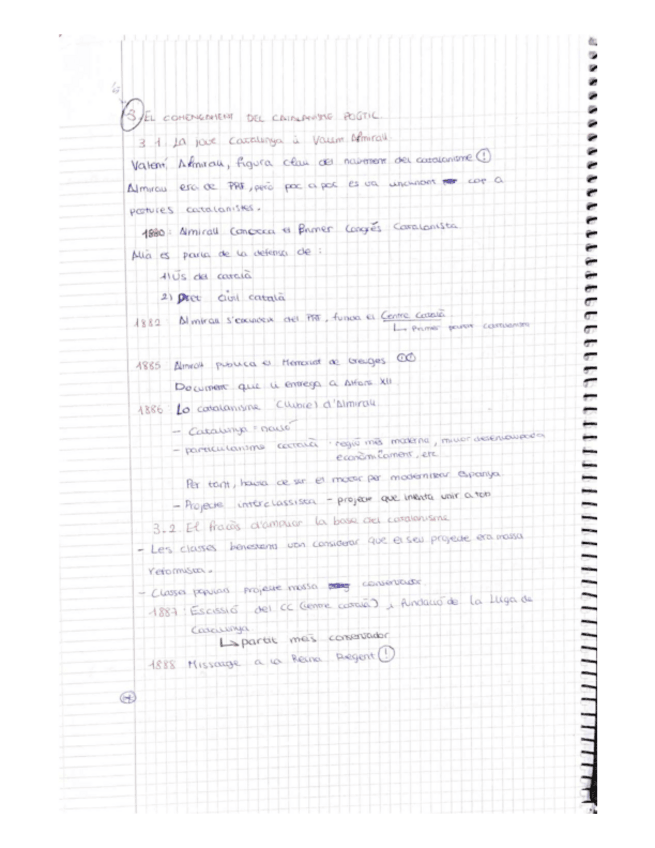 3 EL COMENÇAMENT DEL CATALANISME POLÍTIC
3.1. La jove Catalunya i Valentí Almirall.
Valentí Almirall, figura clau del naixement del catalanisme (!)
Almirall era de PRF, però poc a poc es va inclinant cap a
postures catalanistes.
1880: Almirall Convoca el Primer Congrés Catalanista
Allà es parla de la defensa de:
1) Ús del català
2) Dret civil català
1882 Almirall s'escindeix del PRF, funda el Centre Català
↳ Primer partit catalanista
1885 Almirall publica el Memorial de Greuges
Document que li entrega a Alfons XII
1886 Lo catalanisme (llibre) d'Almirall
- Catalunya "nació"
- particularisme català regió més moderna, millor desenvolupada
econòmicament, etc
Per tant, havia de ser el motor per modernitzar Espanya
- Projecte interclassista - projecte que intenta unir a tots
3.2 El fracàs d'ampliar la base del catalanisme
- Les classes benestants van considerar que el seu projecte era massa
reformista.
- Classes populars projecte massa conservador
1887: Escissió del CC (Centre català) i Fundació de la Lliga de
Catalunya
↳ partit més conservador
1888 Missatge a la Reina Regent (!)